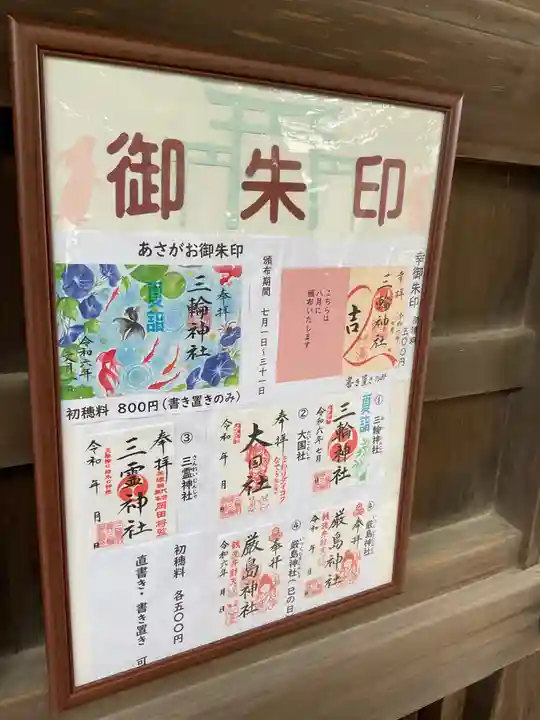 御朱印
あさがお御朱印
奉拝
三輪神社
夏詣
令和六年
文月
初穂料 800円(書き置きのみ)
頒布期間 七月一日~三十一日
幸御朱印
五〇〇円
奉拝
三輪神社
吉
こちらは
八月に
頒布いたします
書き置きのみ
① 三輪神社
夏詣
三輪神社
令和六年七月
② 大国社
奉拝
大国社
令和 年 月 日
③ 三霊神社
奉拝
三霊神社
令和 年 月 日
④ 厳島神社(巳の日
奉拝
厳島神社
令和六年 月 日
⑤ 厳島神社
奉拝
厳島神社
令和 年 月 日
初穂料 各五〇〇円
直書き・書き置き 可